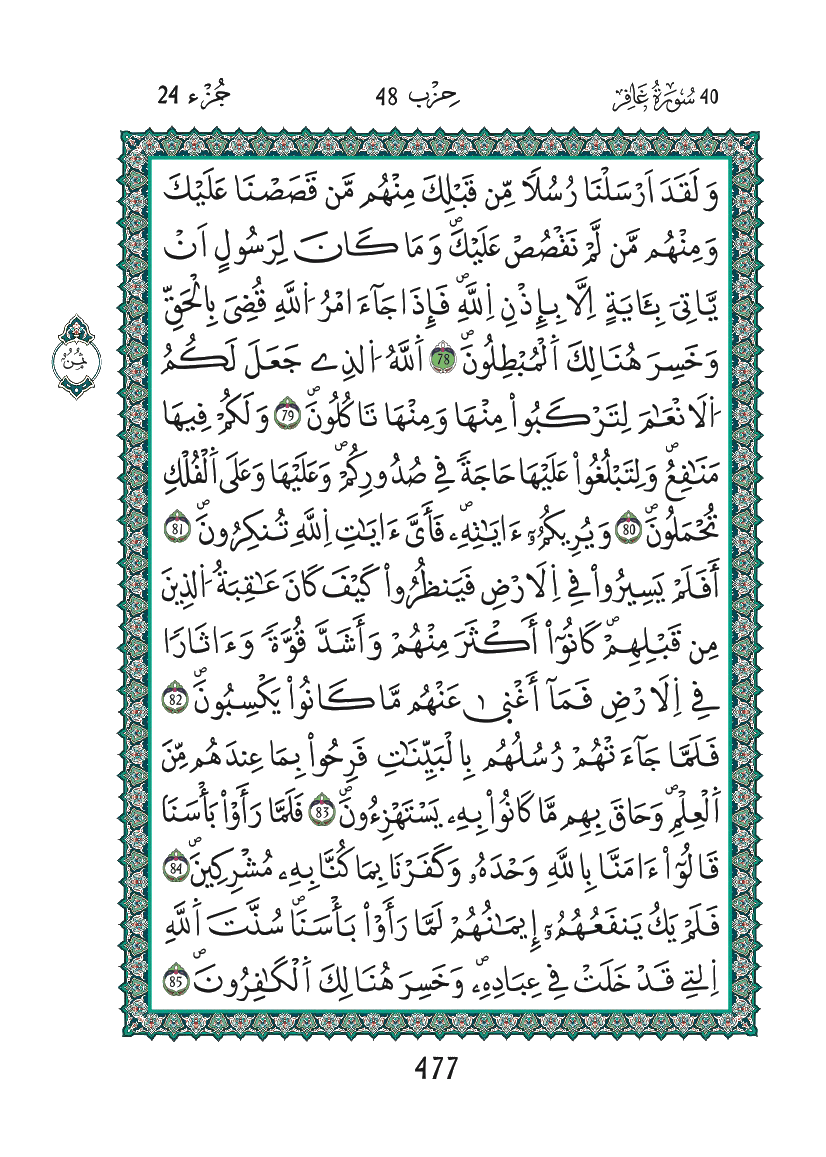 40 سُورَةُ غَافِر حِزْب 48 جُزْء 24
وَلَقَدَ اَرْسَلْنَا رُسُلاٗ مِّن قَبْلِكَ مِنْهُم مَّن قَصَصْنَا عَلَيْكَ
وَمِنْهُم مَّن لَّمْ نَقْصُصْ عَلَيْكَۖ وَمَا كَانَ لِرَسُولٍ اَنْ
يَّاتِىَ بِـَٔايَةٍ اِلَّا بِإِذْنِ اِ۬للَّهِۖ فَإِذَا جَآءَ امْرُ اُ۬للَّهِ قُضِىَ بِالْحَقِّ
وَخَسِرَ هُنَالِكَ اَ۬لْمُبْطِلُونَۖ 78 اَ۬للَّهُ اُ۬لذِے جَعَلَ لَكُمُ
اُ۬لَانْعَٰمَ لِتَرْكَبُواْ مِنْهَا وَمِنْهَا تَاكُلُونَۖ 79 وَلَكُمْ فِيهَا
مَنَٰفِعُۖ وَلِتَبْلُغُواْ عَلَيْهَا حَاجَةٗ فِے صُدُورِكُمْۖ وَعَلَيْهَا وَعَلَى اَ۬لْفُلْكِ
تُحْمَلُونَۖ 80 وَيُرِيكُمُۥٓ ءَايَٰتِهِۦۖ فَأَىَّ ءَايَٰتِ اِ۬للَّهِ تُنكِرُونَۖ 81
أَفَلَمْ يَسِيرُواْ فِے اِ۬لَارْضِ فَيَنظُرُواْ كَيْفَ كَانَ عَٰقِبَةُ اُ۬لذِينَ
مِن قَبْلِهِمْۖ كَانُوٓاْ أَكْثَرَ مِنْهُمْ وَأَشَدَّ قُوَّةٗ وَءَاثَارٗا
فِے اِ۬لَارْضِ فَمَآ أَغْن۪ىٰ عَنْهُم مَّا كَانُواْ يَكْسِبُونَۖ 82
فَلَمَّا جَآءَتْهُمْ رُسُلُهُم بِالْبَيِّنَٰتِ فَرِحُواْ بِمَا عِندَهُم مِّنَ
اَ۬لْعِلْمِۖ وَحَاقَ بِهِم مَّا كَانُواْ بِهِۦ يَسْتَهْزِءُونَۖ 83 فَلَمَّا رَأَوْاْ بَأْسَنَا
قَالُوٓاْ ءَامَنَّا بِاللَّهِ وَحْدَهُۥ وَكَفَرْنَا بِمَا كُنَّا بِهِۦ مُشْرِكِينَۖ 84
فَلَمْ يَكُ يَنفَعُهُمُۥٓ إِيمَٰنُهُمْ لَمَّا رَأَوْاْ بَأْسَنَاۖ سُنَّتَ اَ۬للَّهِ
اِ۬لتِے قَدْ خَلَتْ فِے عِبَادِهِۦۖ وَخَسِرَ هُنَالِكَ اَ۬لْكَٰفِرُونَۖ 85
ثُمُنٌ
477